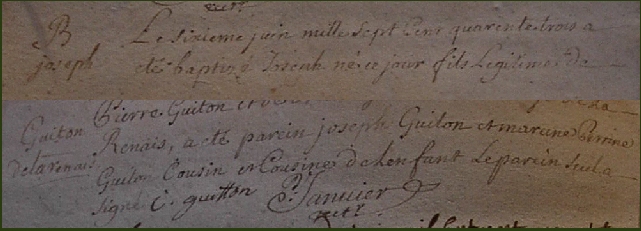 B
joseph
Le sixieme juin mille sept Cent quarente trois a
eté baptizé Joseph né ce jour fils Legitime de
Guiton
delarenais
Pierre Guiton et
Renais, a eté parein joseph Guiton et mareine Perrine
Guiton Cousin et Cousine de Lenfant Le parein seul a
signé J. guitton P. Januier
rectr